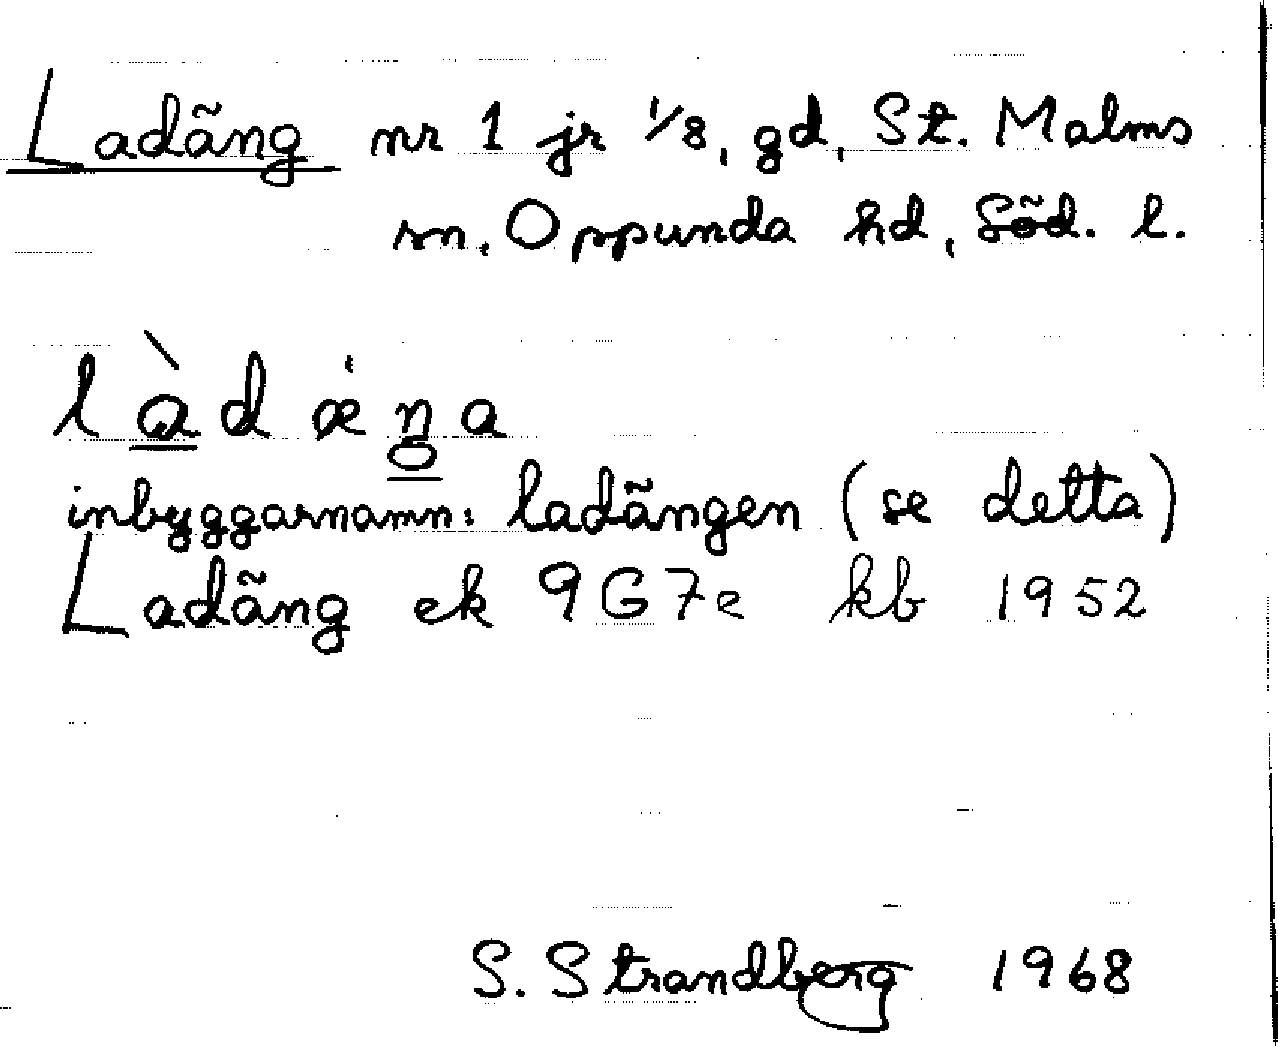 Ladäng nr 1 jr 1/8, gd, St. Malms
sn, Oppunda hd, Söd. l.
làdæŋa
inbyggarnamn: ladängen (se detta)
Ladäng ek 9G7e kb 1952
S. Strandberg 1968